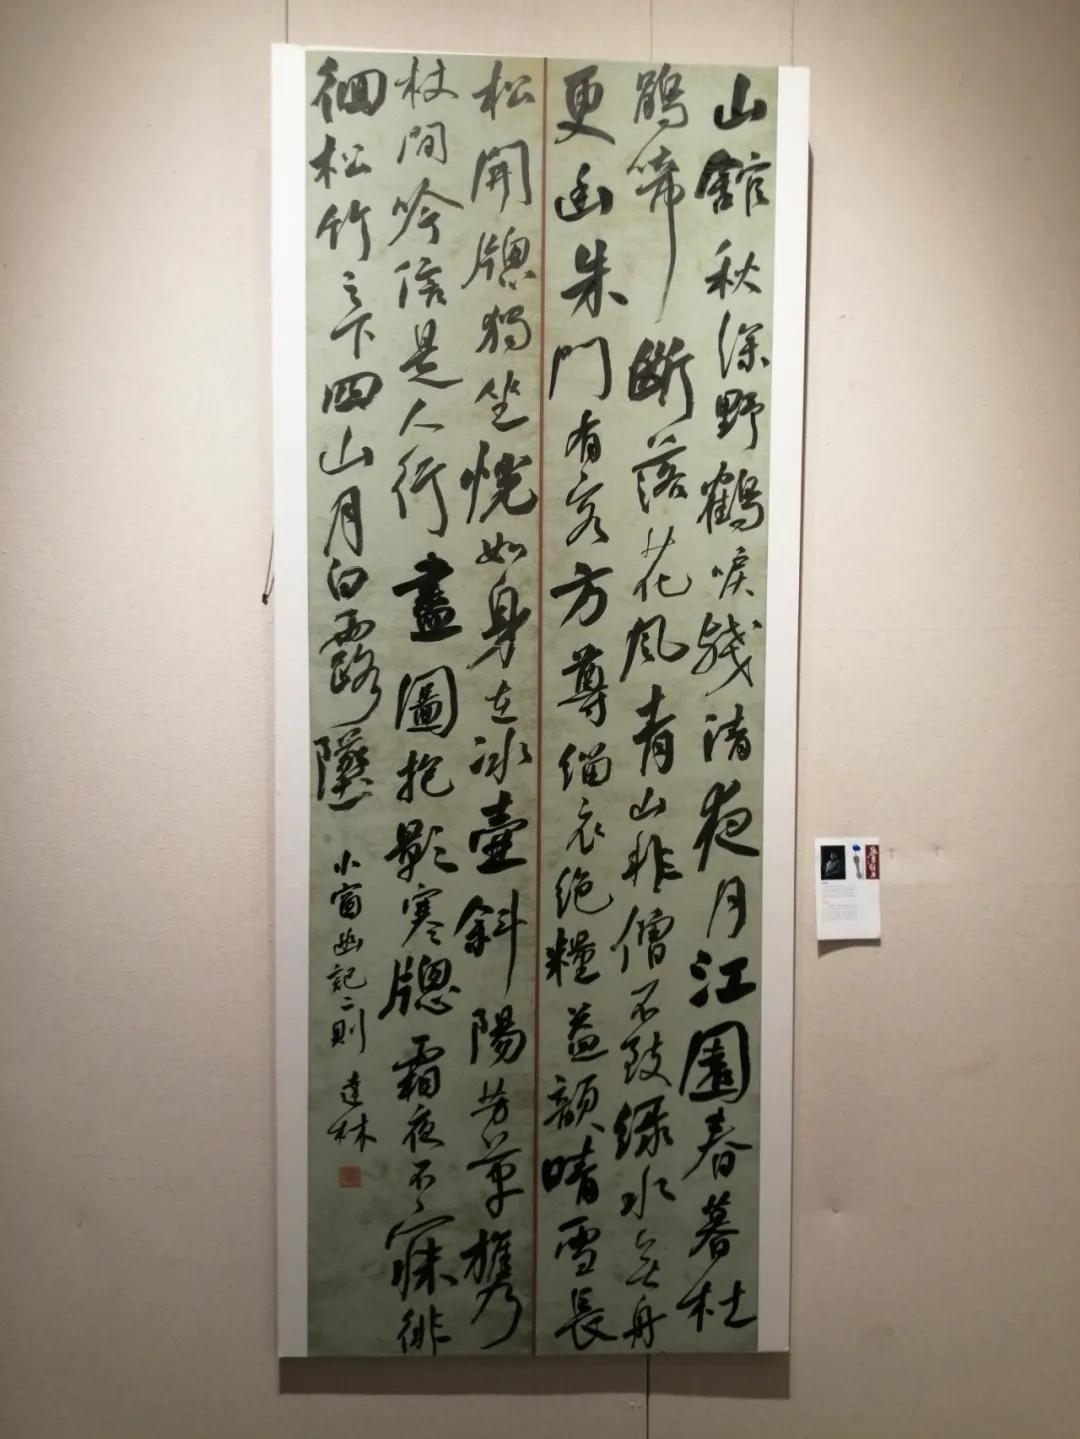 山館秋深野鶴唳殘清夜月江園春暮杜
鵑啼斷落花風青山非僧不致綠水無舟
更幽朱門有客方尊緇衣絕糧益韻晴雪長
松開牕獨坐恍如身在冰壺斜陽芳草攜
杖閒吟信是人行畫圖抱影寒牕霜夜不寐徘
徊松竹之下四山月白露墜
小窗幽記二則 達林